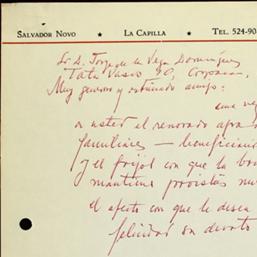 SALVADOR NOVO ★ LA CAPILLA ★ TEL. 524-90
Sr. D. Jorge de la Vega Domínguez
Tata Vasco 90, Coyoacán.
Muy generoso y estimado amigo:
una ve
a usted el renovado
familiares — beneficiario
y el frijol con que la bon
mantiene provista
el afecto con que le desea
felicidad su devoto